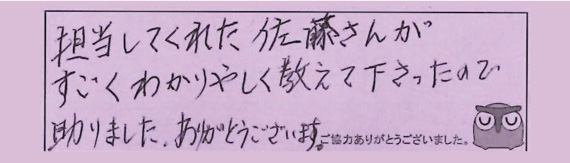 担当してくれた佐藤さんが
すごくわかりやしく教えて下さったので
助りました。ありがとうございます。
ご協力ありがとうございました。